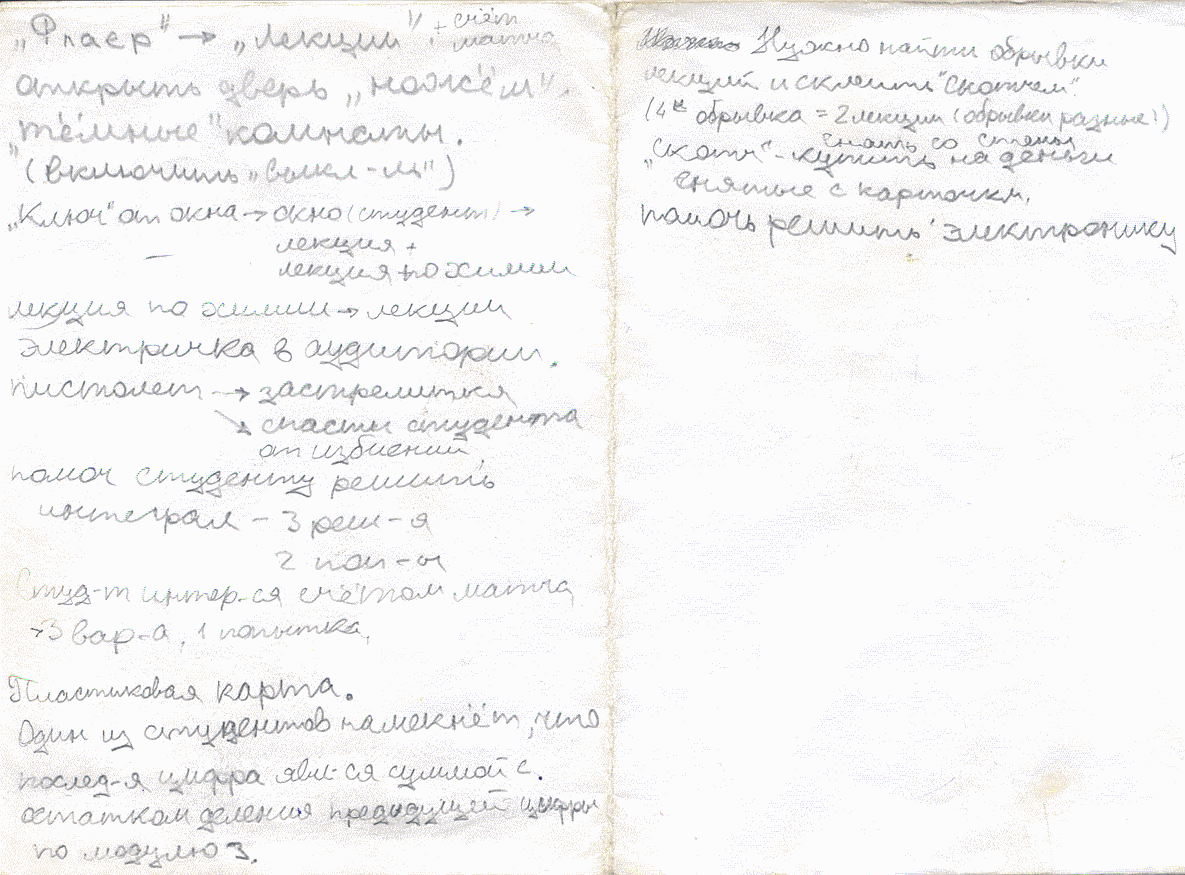 „Флаер" → „лекции" + счёт
матча
открыть дверь „ножём".
„тёмные" комнаты.
(включить „выкл-ль")
„Ключ" от окна → окно (студент) →
лекция +
лекция по химии
лекция по химии → лекции
электричка в аудитории.
пистолет → застрелится
↘ спасти студента
от избиений.
помоч студенту решить
интеграл – 3 реш-я
2 поп-ы
Студ-т интер-ся счётом матча,
→3 вар-а, 1 попытка,
Пластиковая карта.
Один из студентов намекнёт, что
послед-я цифра явл-ся суммой с.
остатком деления предыдущей цифры
по модулю 3.
Нужно найти обрывки
лекций и склеить "скотчем".
(4 обрывка = 2 лекции (обрывки разные!)
снять со стены
„Скотч" - купить на деньги
снятые с карточки.
помочь решить электронику